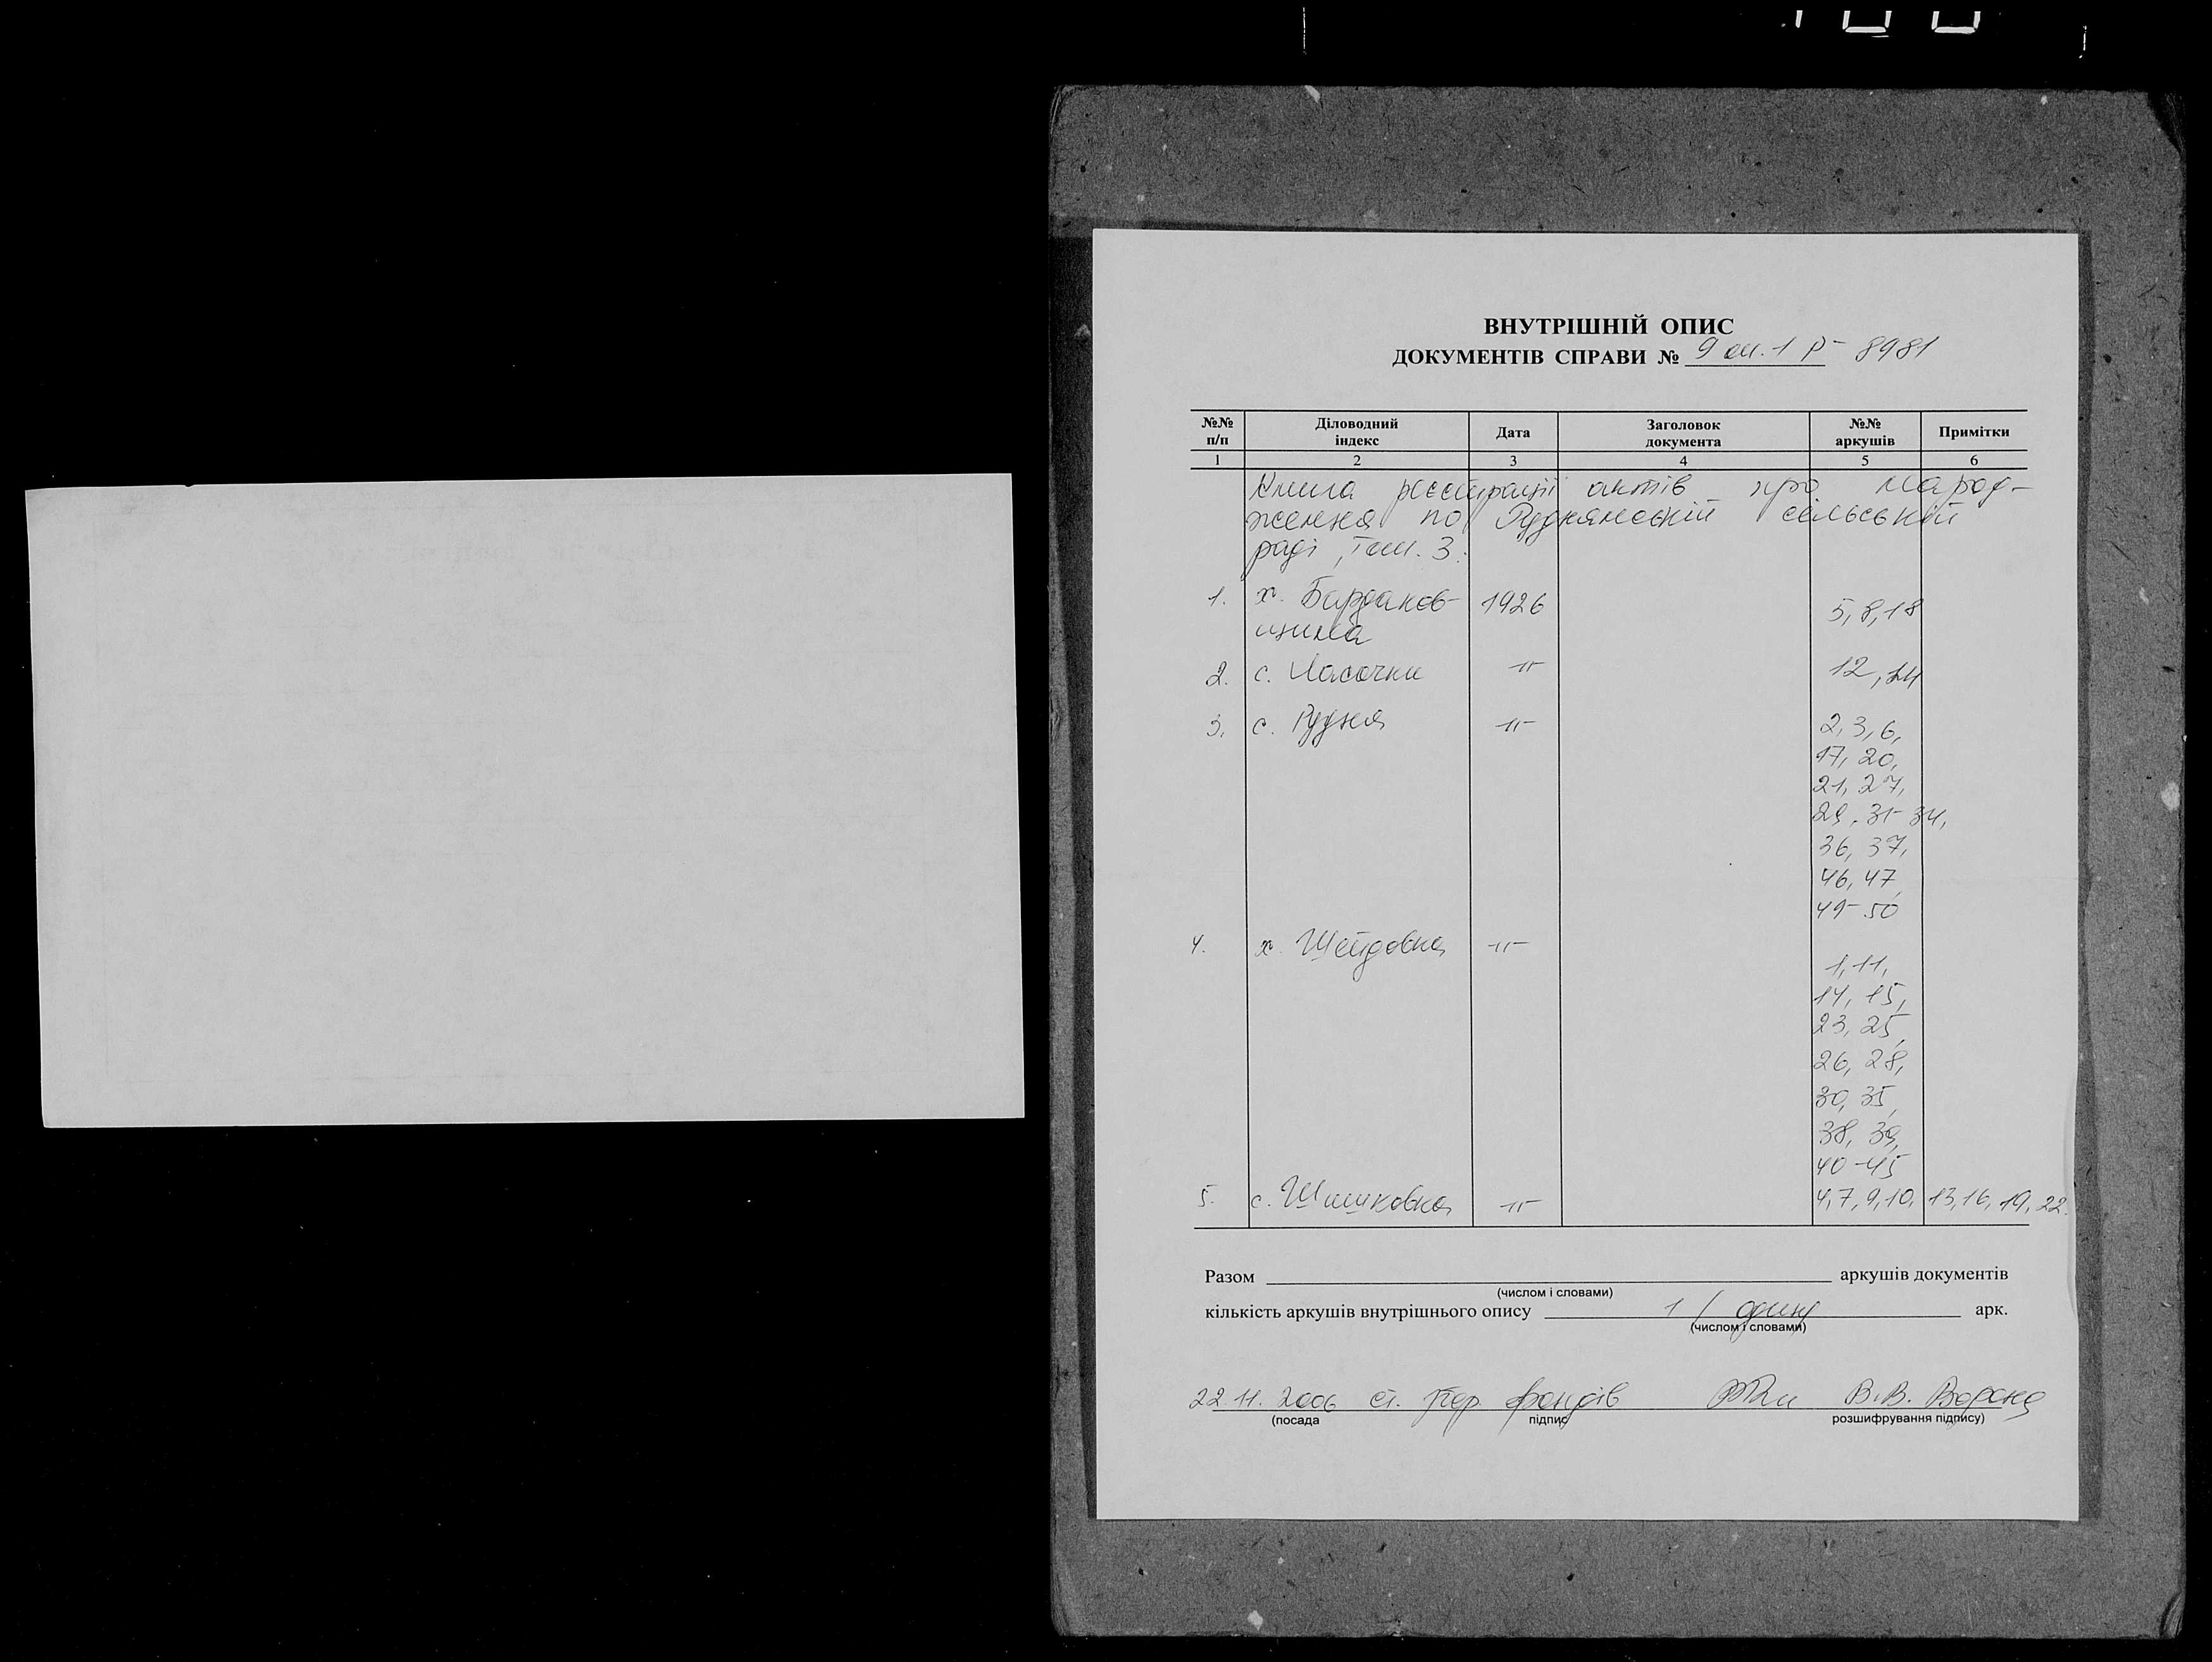 ВНУТРІШНІЙ ОПИС
ДОКУМЕНТІВ СПРАВИ № 9 оп. 1 Р- 8981
№№ п/п Діловодний індекс Дата Заголовок документа №№ аркушів Примітки
1 2 3 4 5 6
Книга реєстрації актів про народ-
ження по Руднянській сільській
раді, том. 3.
1. х. Бардаков- 1926 5, 8, 18
щина
2. с. Ласочки -"- 12, 24
3. с. Рудня -"- 2, 3, 6,
17, 20,
21, 27,
29, 31-34,
36, 37,
46, 47,
49-50
4. х. Шейдовка -"-
1, 11,
14, 15,
23, 25,
26, 28,
30, 35,
38, 39,
40-45
5. с. Шишковка -"- 4, 7, 9, 10, 13, 16, 19, 22.
Разом аркушів документів
(числом і словами)
кількість аркушів внутрішнього опису 1 / один арк.
(числом і словами)
22.11.2006 ст. фондів В.В. Ворона
(посада підпис розшифрування підпису)